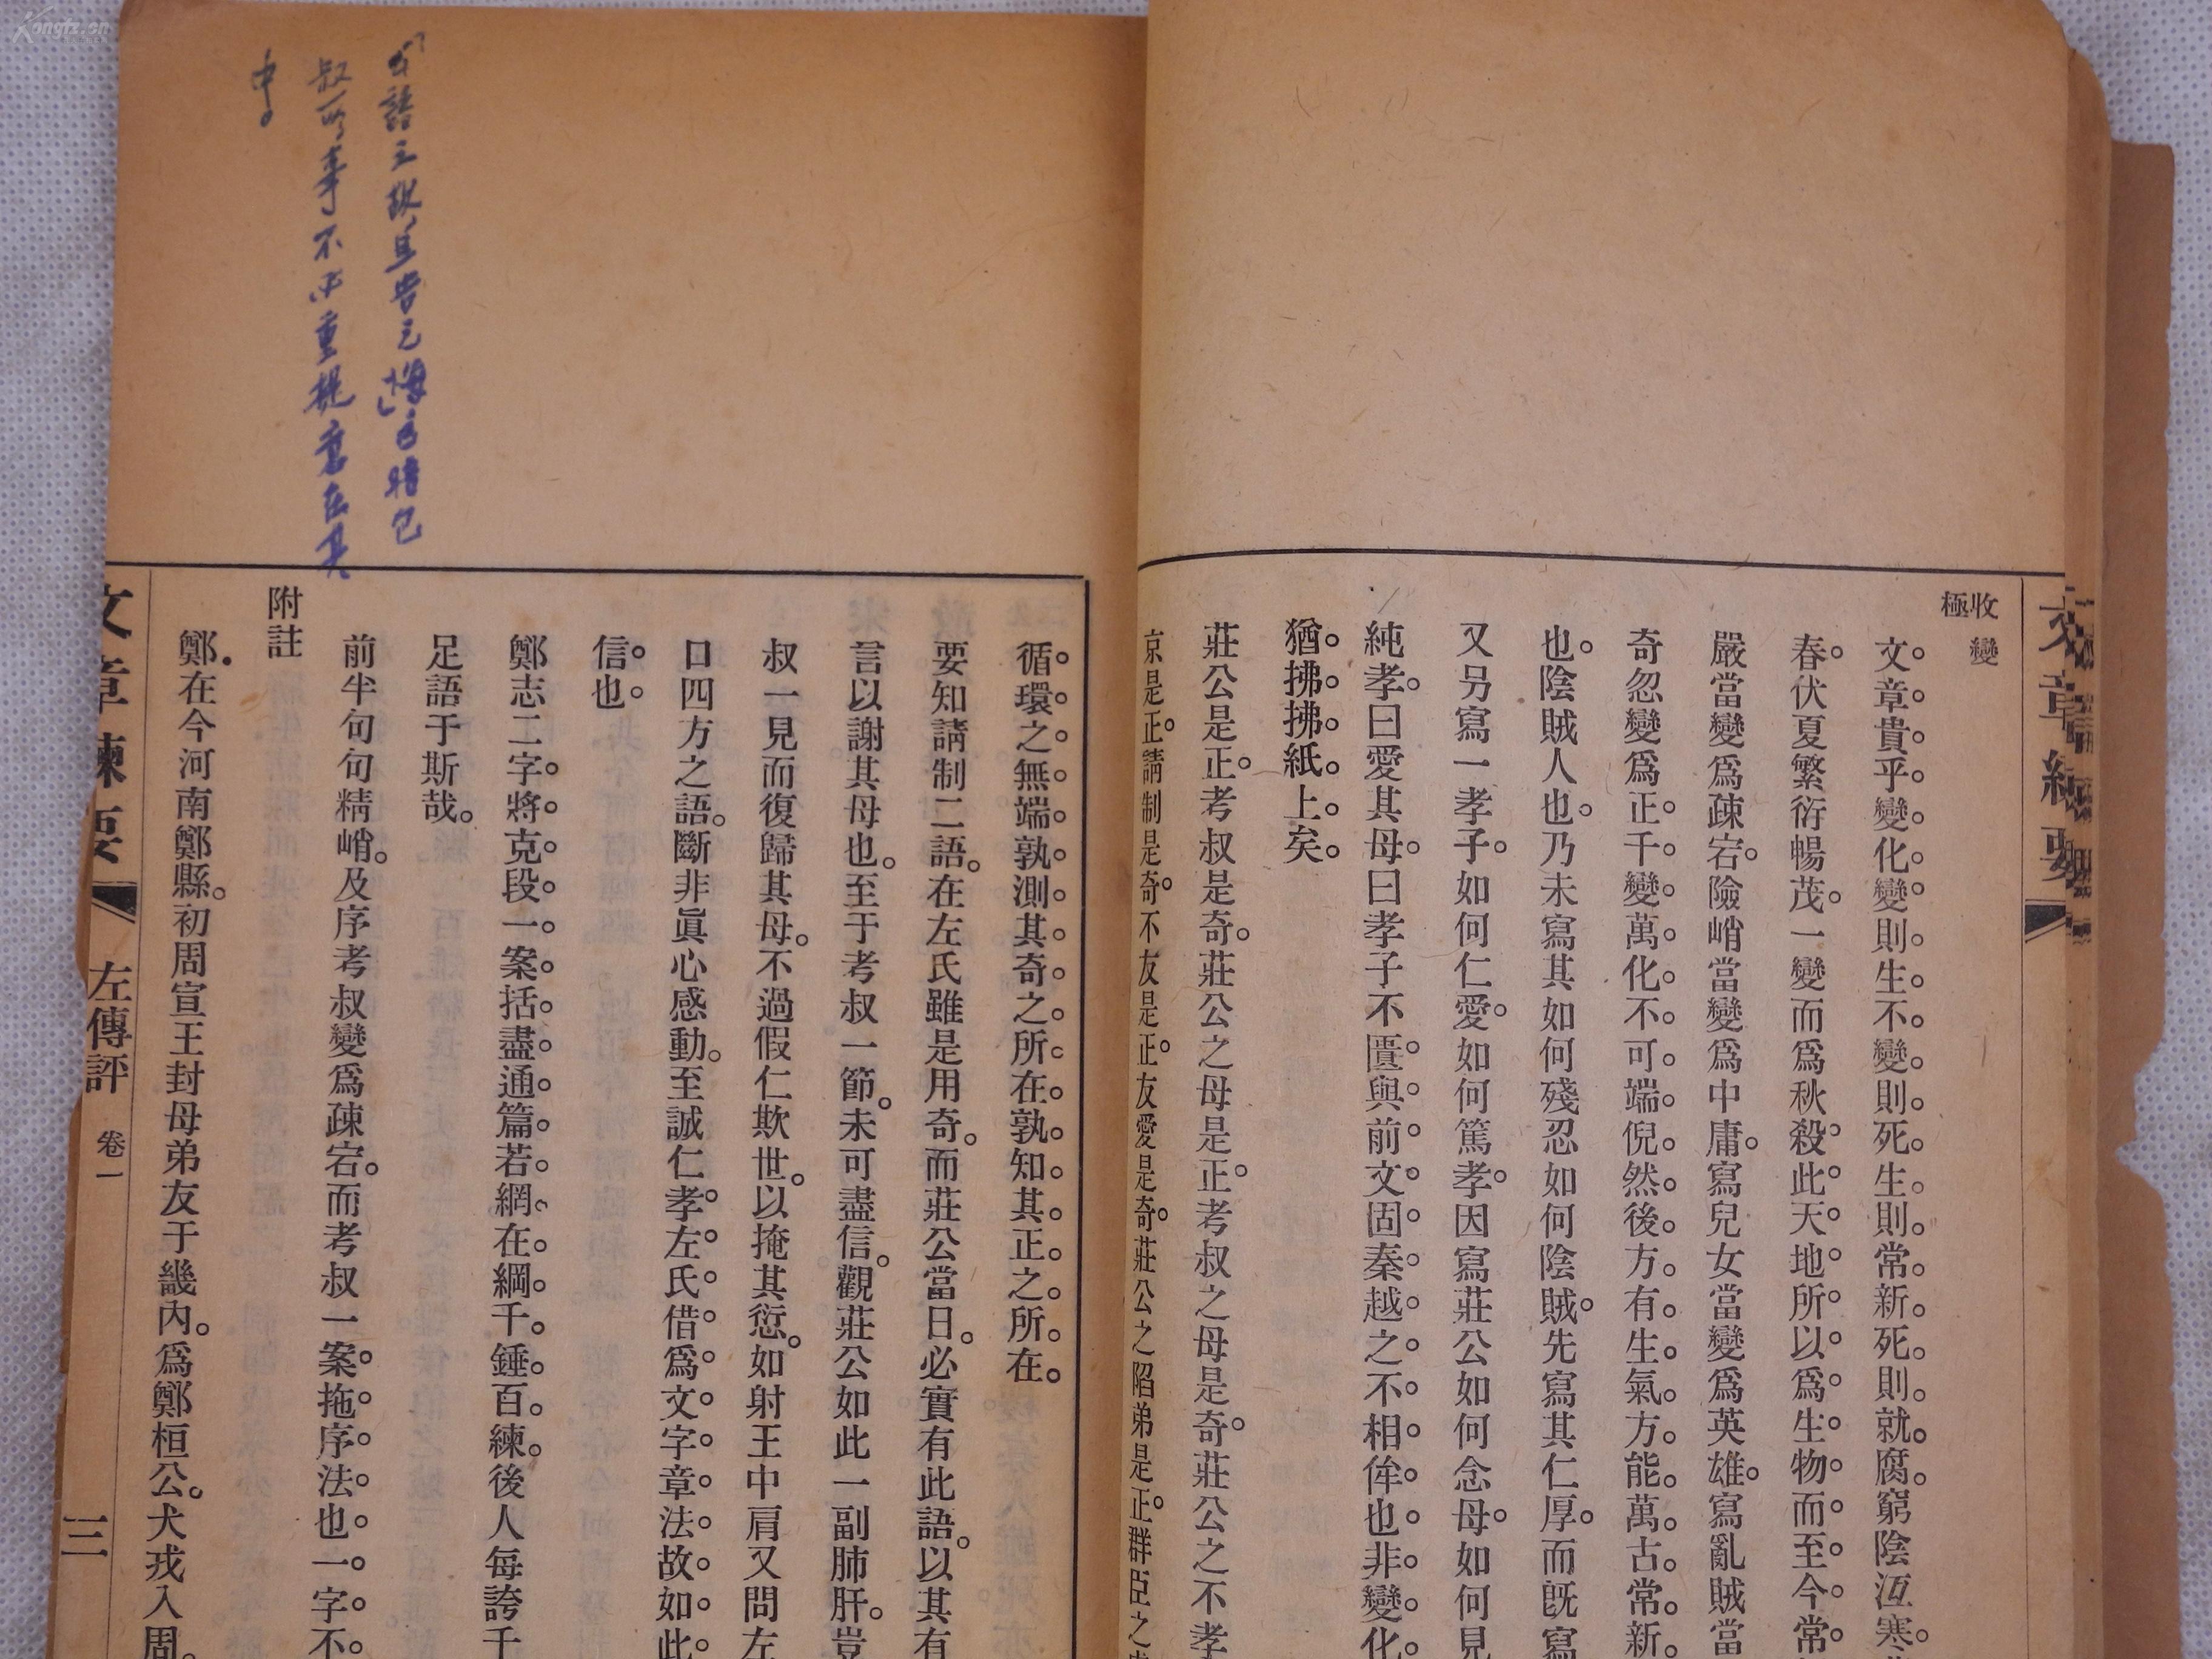 Kongfz.cn
文章練要
收變
極
文章貴乎變化變則生不變則死生則常新死則就腐窮陰沍寒
春伏夏繁衍暢茂一變而爲秋殺此天地所以爲生物而至今常
嚴當變爲疎宕險峭當變爲中庸寫兒女當變爲英雄寫亂賊當
奇忽變爲正千變萬化不可端倪然後方有生氣方能萬古常新
也陰賊人也乃未寫其如何殘忍如何陰賊先寫其仁厚而旣寫
又另寫一孝子如何仁愛如何篤孝因寫莊公如何念母如何見
純孝曰愛其母曰孝子不匱與前文固秦越之不相侔也非變化
猶拂拂紙上矣
莊公是正考叔是奇莊公之母是正考叔之母是奇莊公之不孝
京是正請制是奇不友是正友愛是奇莊公之陷弟是正群臣之
循環之無端孰測其奇之所在孰知其正之所在
要知請制二語在左氏雖是用奇而莊公當日必實有此語以其有
言以謝其母也至于考叔一節未可盡信觀莊公如此一副肺肝豈
叔一見而復歸其母不過假仁欺世以掩其愆如射王中肩又問左
口四方之語斷非眞心感動至誠仁孝左氏借爲文字章法故如此
信也
鄭志二字將克段一案括盡通篇若網在綱千錘百練後人每誇千
足語于斯哉
前半句句精峭及序考叔變爲疎宕而考叔一案拖序法也一字不
附註
鄭在今河南鄭縣初周宣王封母弟友于畿內爲鄭桓公犬戎入周
文章練要 左傳評 卷一 三
「公語之故且告之悔」句暗包
叔段事不必重提意在其
中。